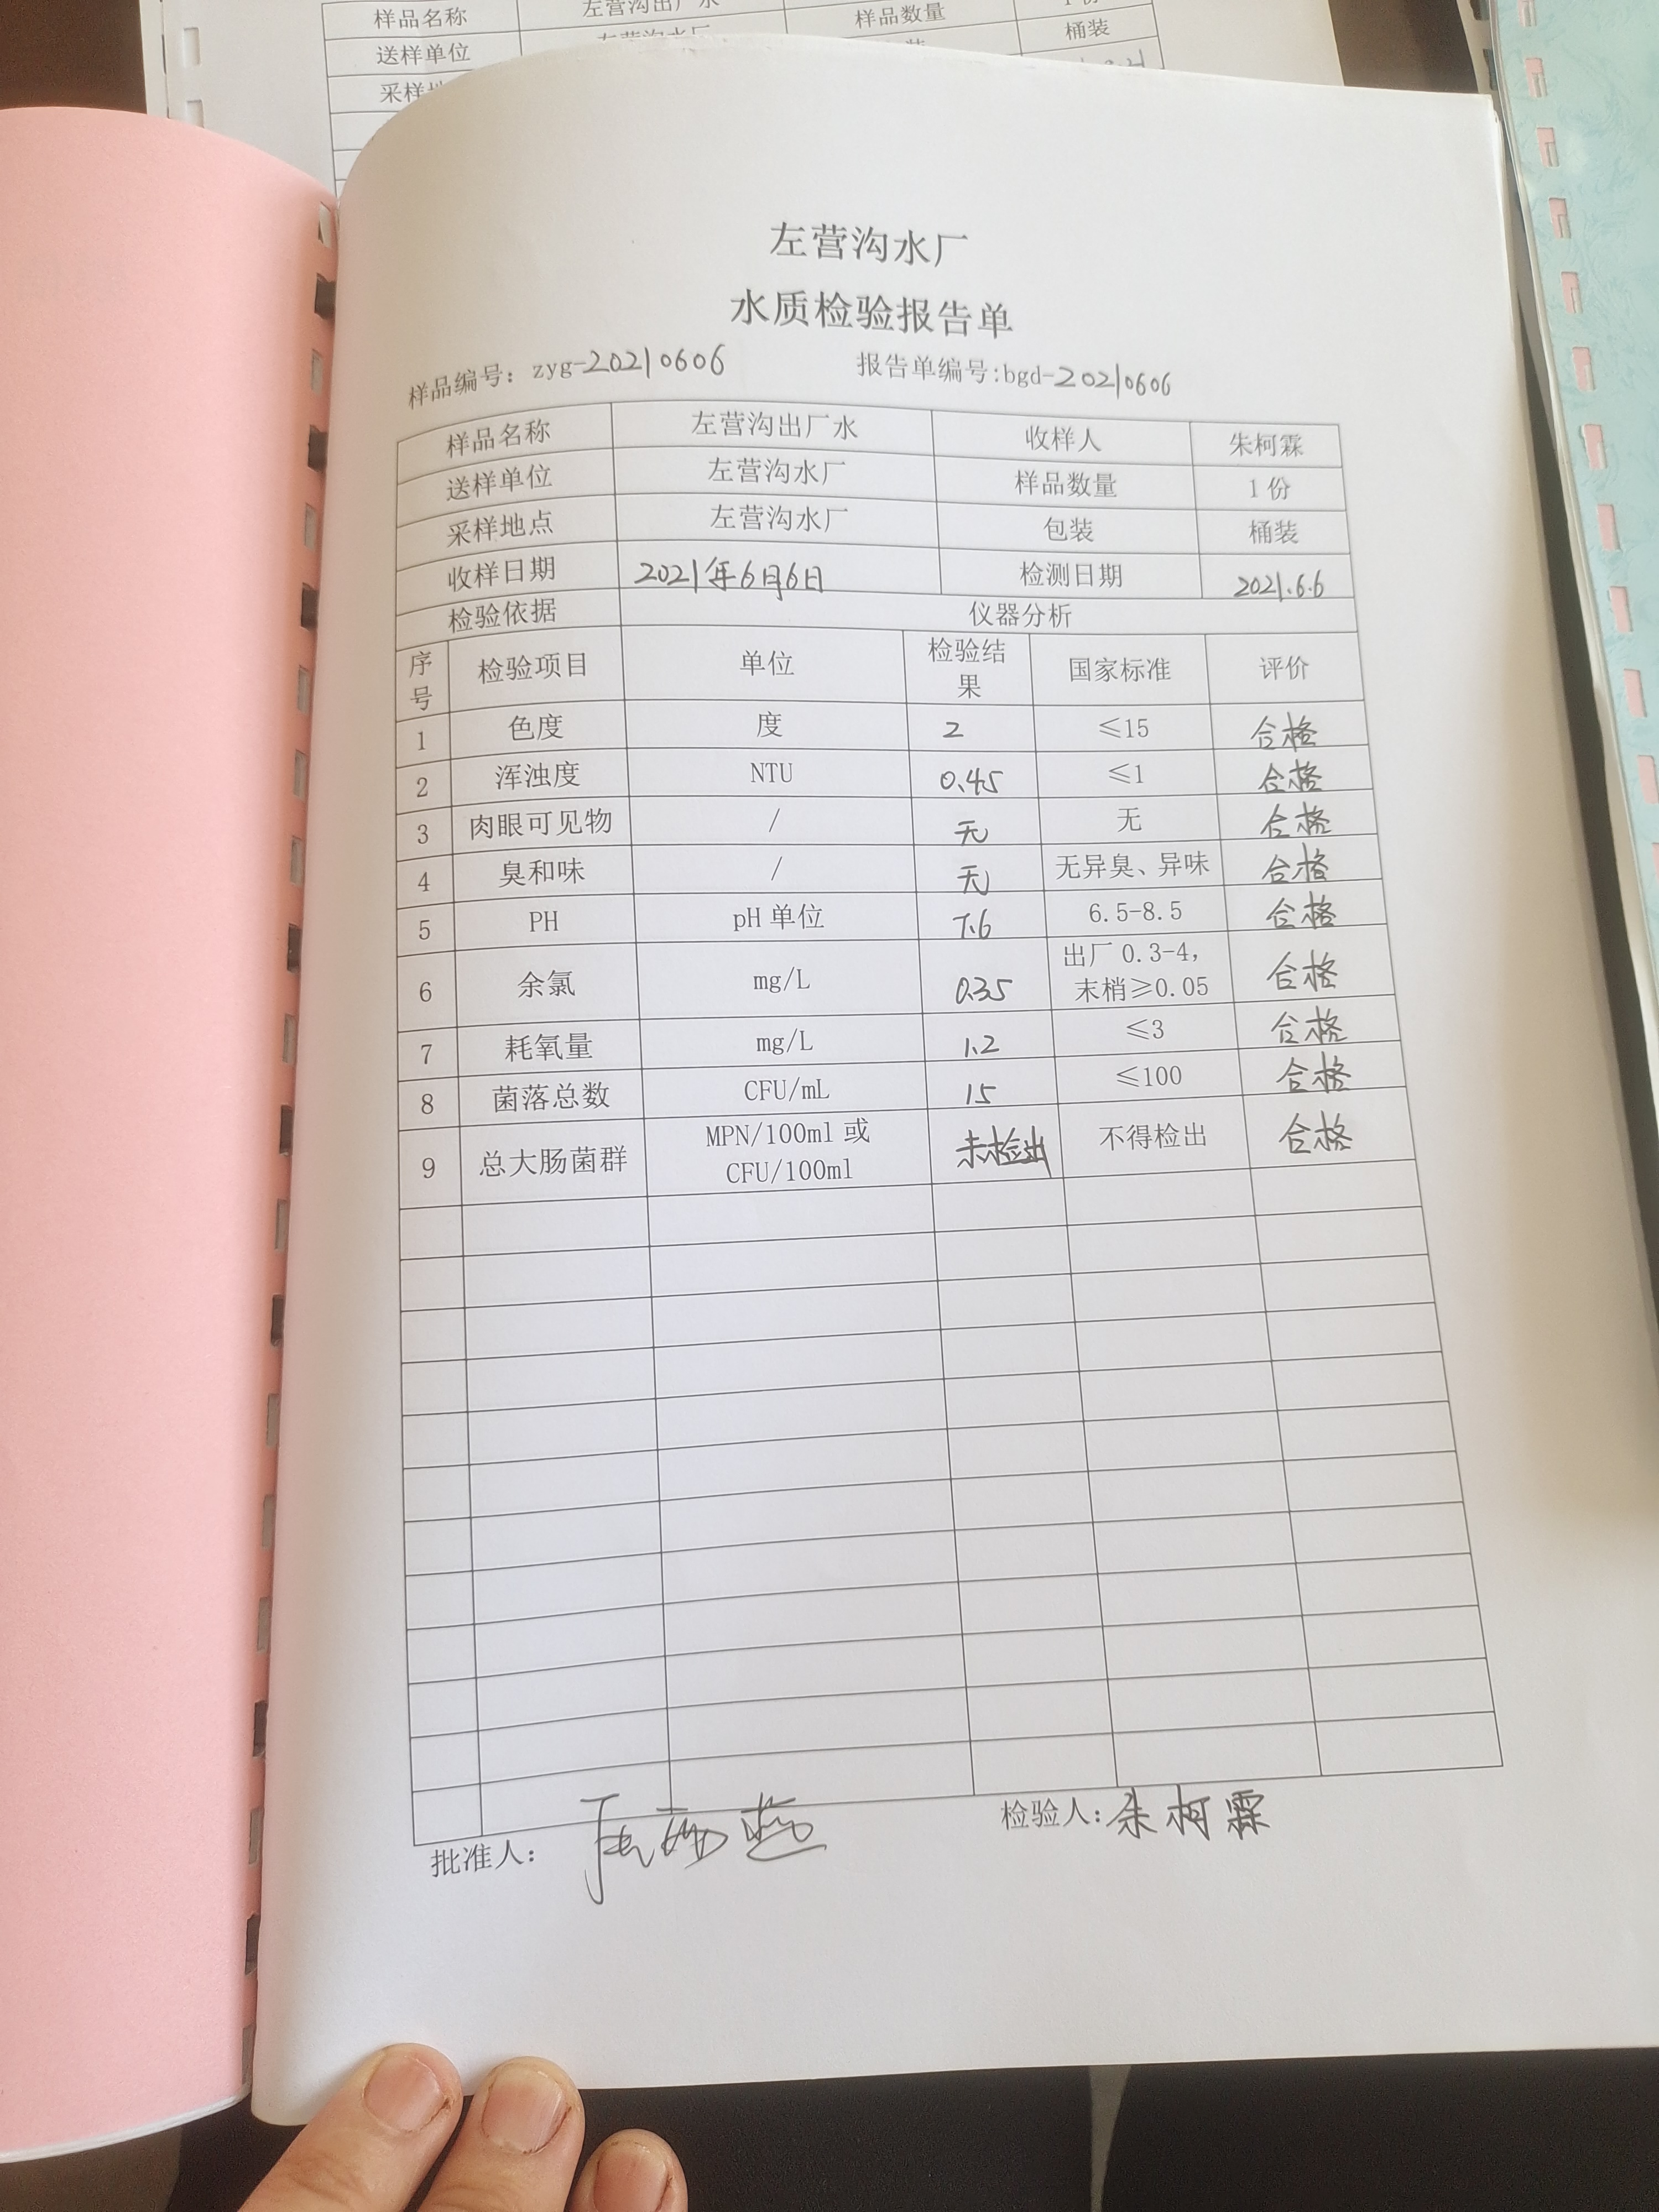 样品名称 左营沟出厂水 样品数量 1份
送样单位 左营沟水厂 桶装
左营沟水厂
水质检验报告单
样品编号：zyg-20210606 报告单编号:bgd-20210606
样品名称 左营沟出厂水 收样人 朱柯霖
送样单位 左营沟水厂 样品数量 1份
采样地点 左营沟水厂 包装 桶装
收样日期 2021年6月6日 检测日期 2021.6.6
检验依据 仪器分析
序号 检验项目 单位 检验结果 国家标准 评价
1 色度 度 2 ≤15 合格
2 浑浊度 NTU 0.45 ≤1 合格
3 肉眼可见物 / 无 无 合格
4 臭和味 / 无 无异臭、异味 合格
5 PH pH单位 7.6 6.5-8.5 合格
6 余氯 mg/L 0.35 出厂0.3-4，末梢≥0.05 合格
7 耗氧量 mg/L 1.2 ≤3 合格
8 菌落总数 CFU/mL 15 ≤100 合格
9 总大肠菌群 MPN/100ml或CFU/100ml 未检出 不得检出 合格
批准人： 检验人:朱柯霖